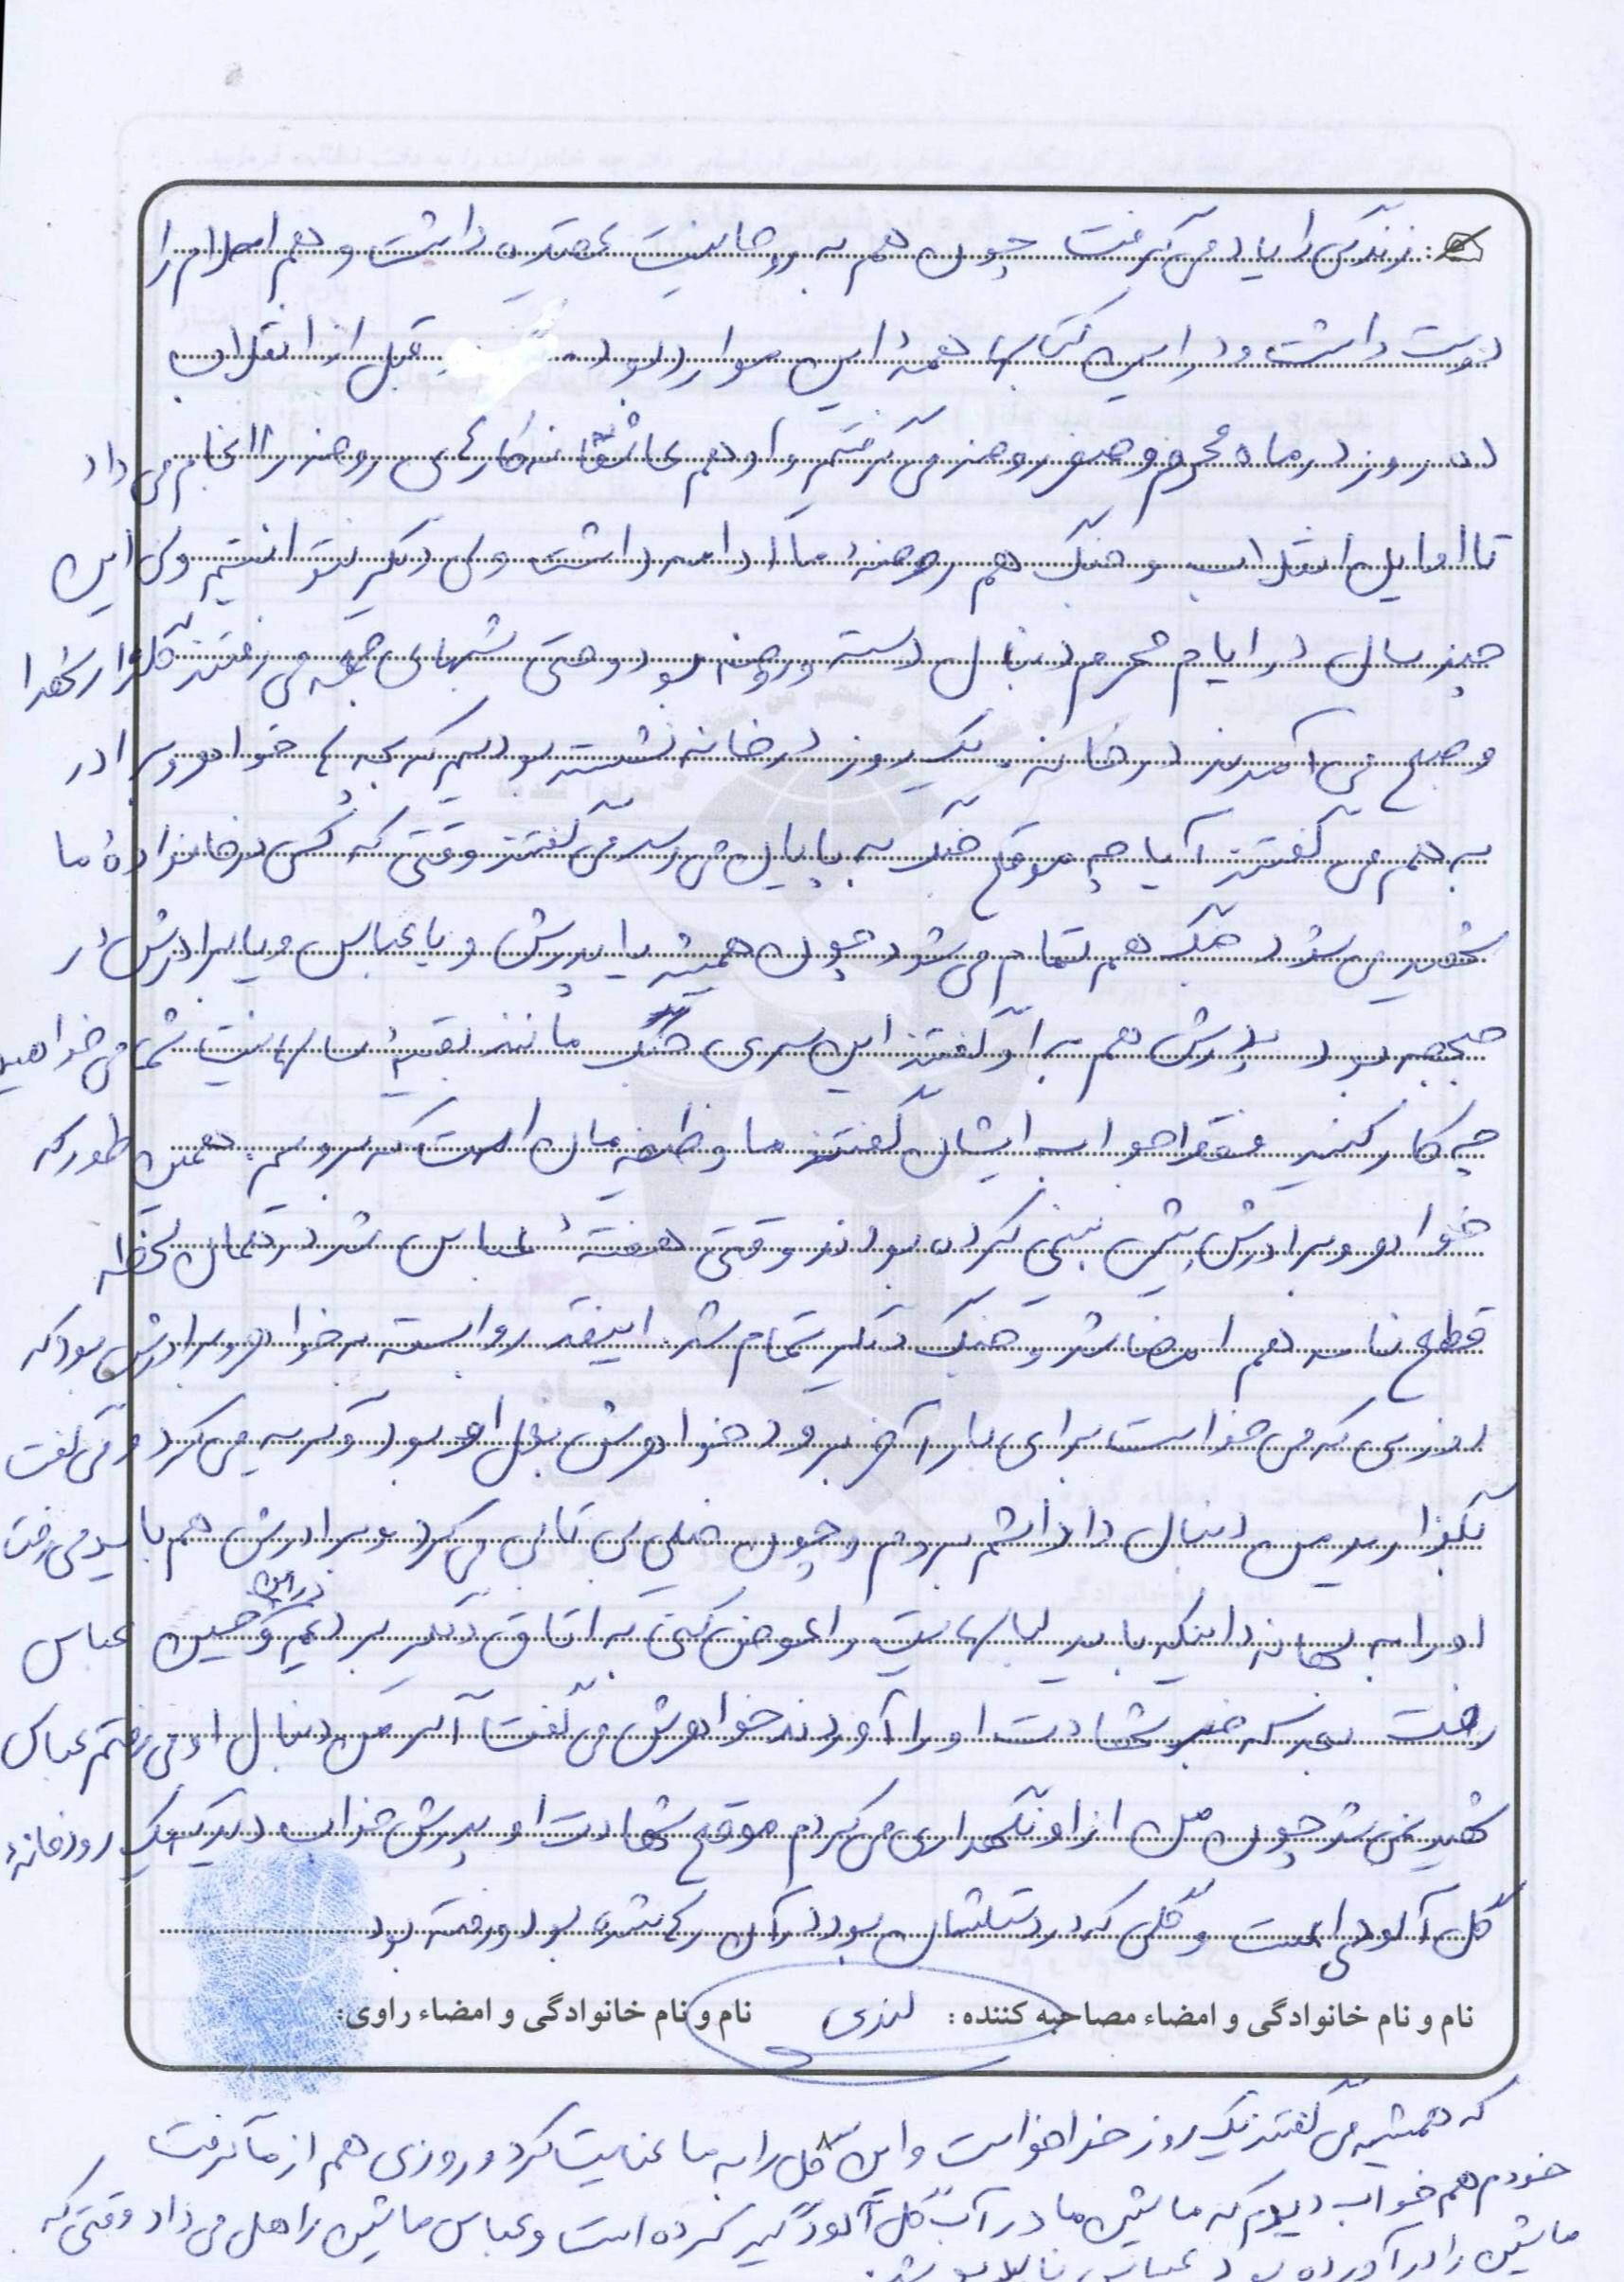 زندگی را یاد می‌گرفت چون هم به روحانیت عقیده داشت و هم اسلام را
دوست داشت و در این کتابها همهٔ این موارد بود. قبل از انقلاب
ده روز در ماه محرم و صفر روضه می‌گرفتیم و او هم عاشقانه کارهای روضه را انجام می‌داد
تا اوایل انقلاب و جنگ هم روضهٔ ما ادامه داشت ولی دیگر نتوانستیم ولی این
چند سال در ایام محرم دنبال دسته و روضه بود و حتی شبهای جمعه می‌رفتند گلزار شهدا
و صبح می‌آمدند در خانه. یک روز در خانه نشسته بودیم که بچه‌ها خواهر و برادر
به هم می‌گفتند آیا چه موقع جنگ به پایان می‌رسد می‌گفتند وقتی که کسی در خانوادهٔ ما
شهید می‌شود جنگ هم تمام می‌شود چون همیشه یا پدرش و یا عباس و یا برادرش در
جبهه بود پدرش هم به او گفتند این سری جنگ مانند بقیهٔ سالها نیست شما می‌خواهید
چه کار کنید فقط جواب ایشان گفتند ما وظیفه‌مان است که برویم. همین طور که
خواهر و برادرش پیش بینی کرده بودند وقتی هفتهٔ عباس شد در همان لحظه
قطع نامه هم امضا شد و جنگ دیگر تمام شد. اینقدر وابسته به خواهر و برادرش بود که
روزی که می‌خواست برای بار آخر برود خواهرش بغل او بود و گریه می‌کرد و می‌گفت
بگذارید من دنبال داداشم بروم و چون خیلی بی تابی می‌کرد و برادرش هم باید می‌رفت
او را به بهانه اینکه باید لباسهایت را عوض کنی به اتاق دیگر بردیم و در این حین عباس
رفت بعد که خبر شهادت او را آوردند خواهرش می‌گفت اگر من دنبال او می‌رفتم عباس
شهید نمی‌شد چون من از او نگهداری می‌کردم موقع شهادت او پدرش خواب دید که یک رودخانهٔ
گل آلودی است و گلی که در دستشان بود در آن رها شده بود و رفته بود
نام و نام خانوادگی و امضاء مصاحبه کننده: نام و نام خانوادگی و امضاء راوی:
که همیشه می‌گفتند یک روز خدا خواست و این گل را به ما عنایت کرد و روزی هم از ما گرفت
خودم هم خواب دیدم که ماشین ما در آب گل آلود گیر کرده است و عباس ماشین را هل می‌داد وقتی که
ماشین را در آورده بود عباس ناپدید شد.